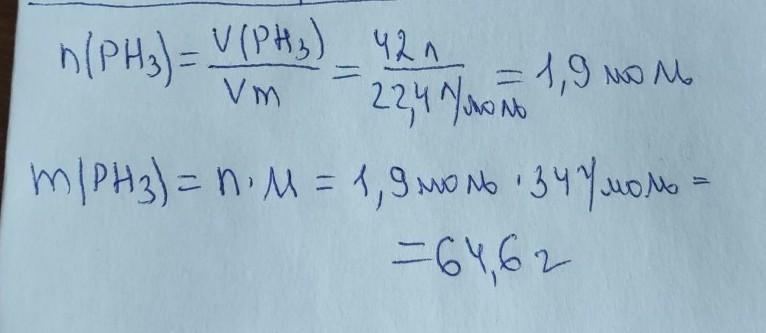 n(PH₃) = V(PH₃)/Vm = 42 л/22,4 л/моль = 1,9 моль
m(PH₃) = n · M = 1,9 моль · 34 г/моль =
= 64,6 г